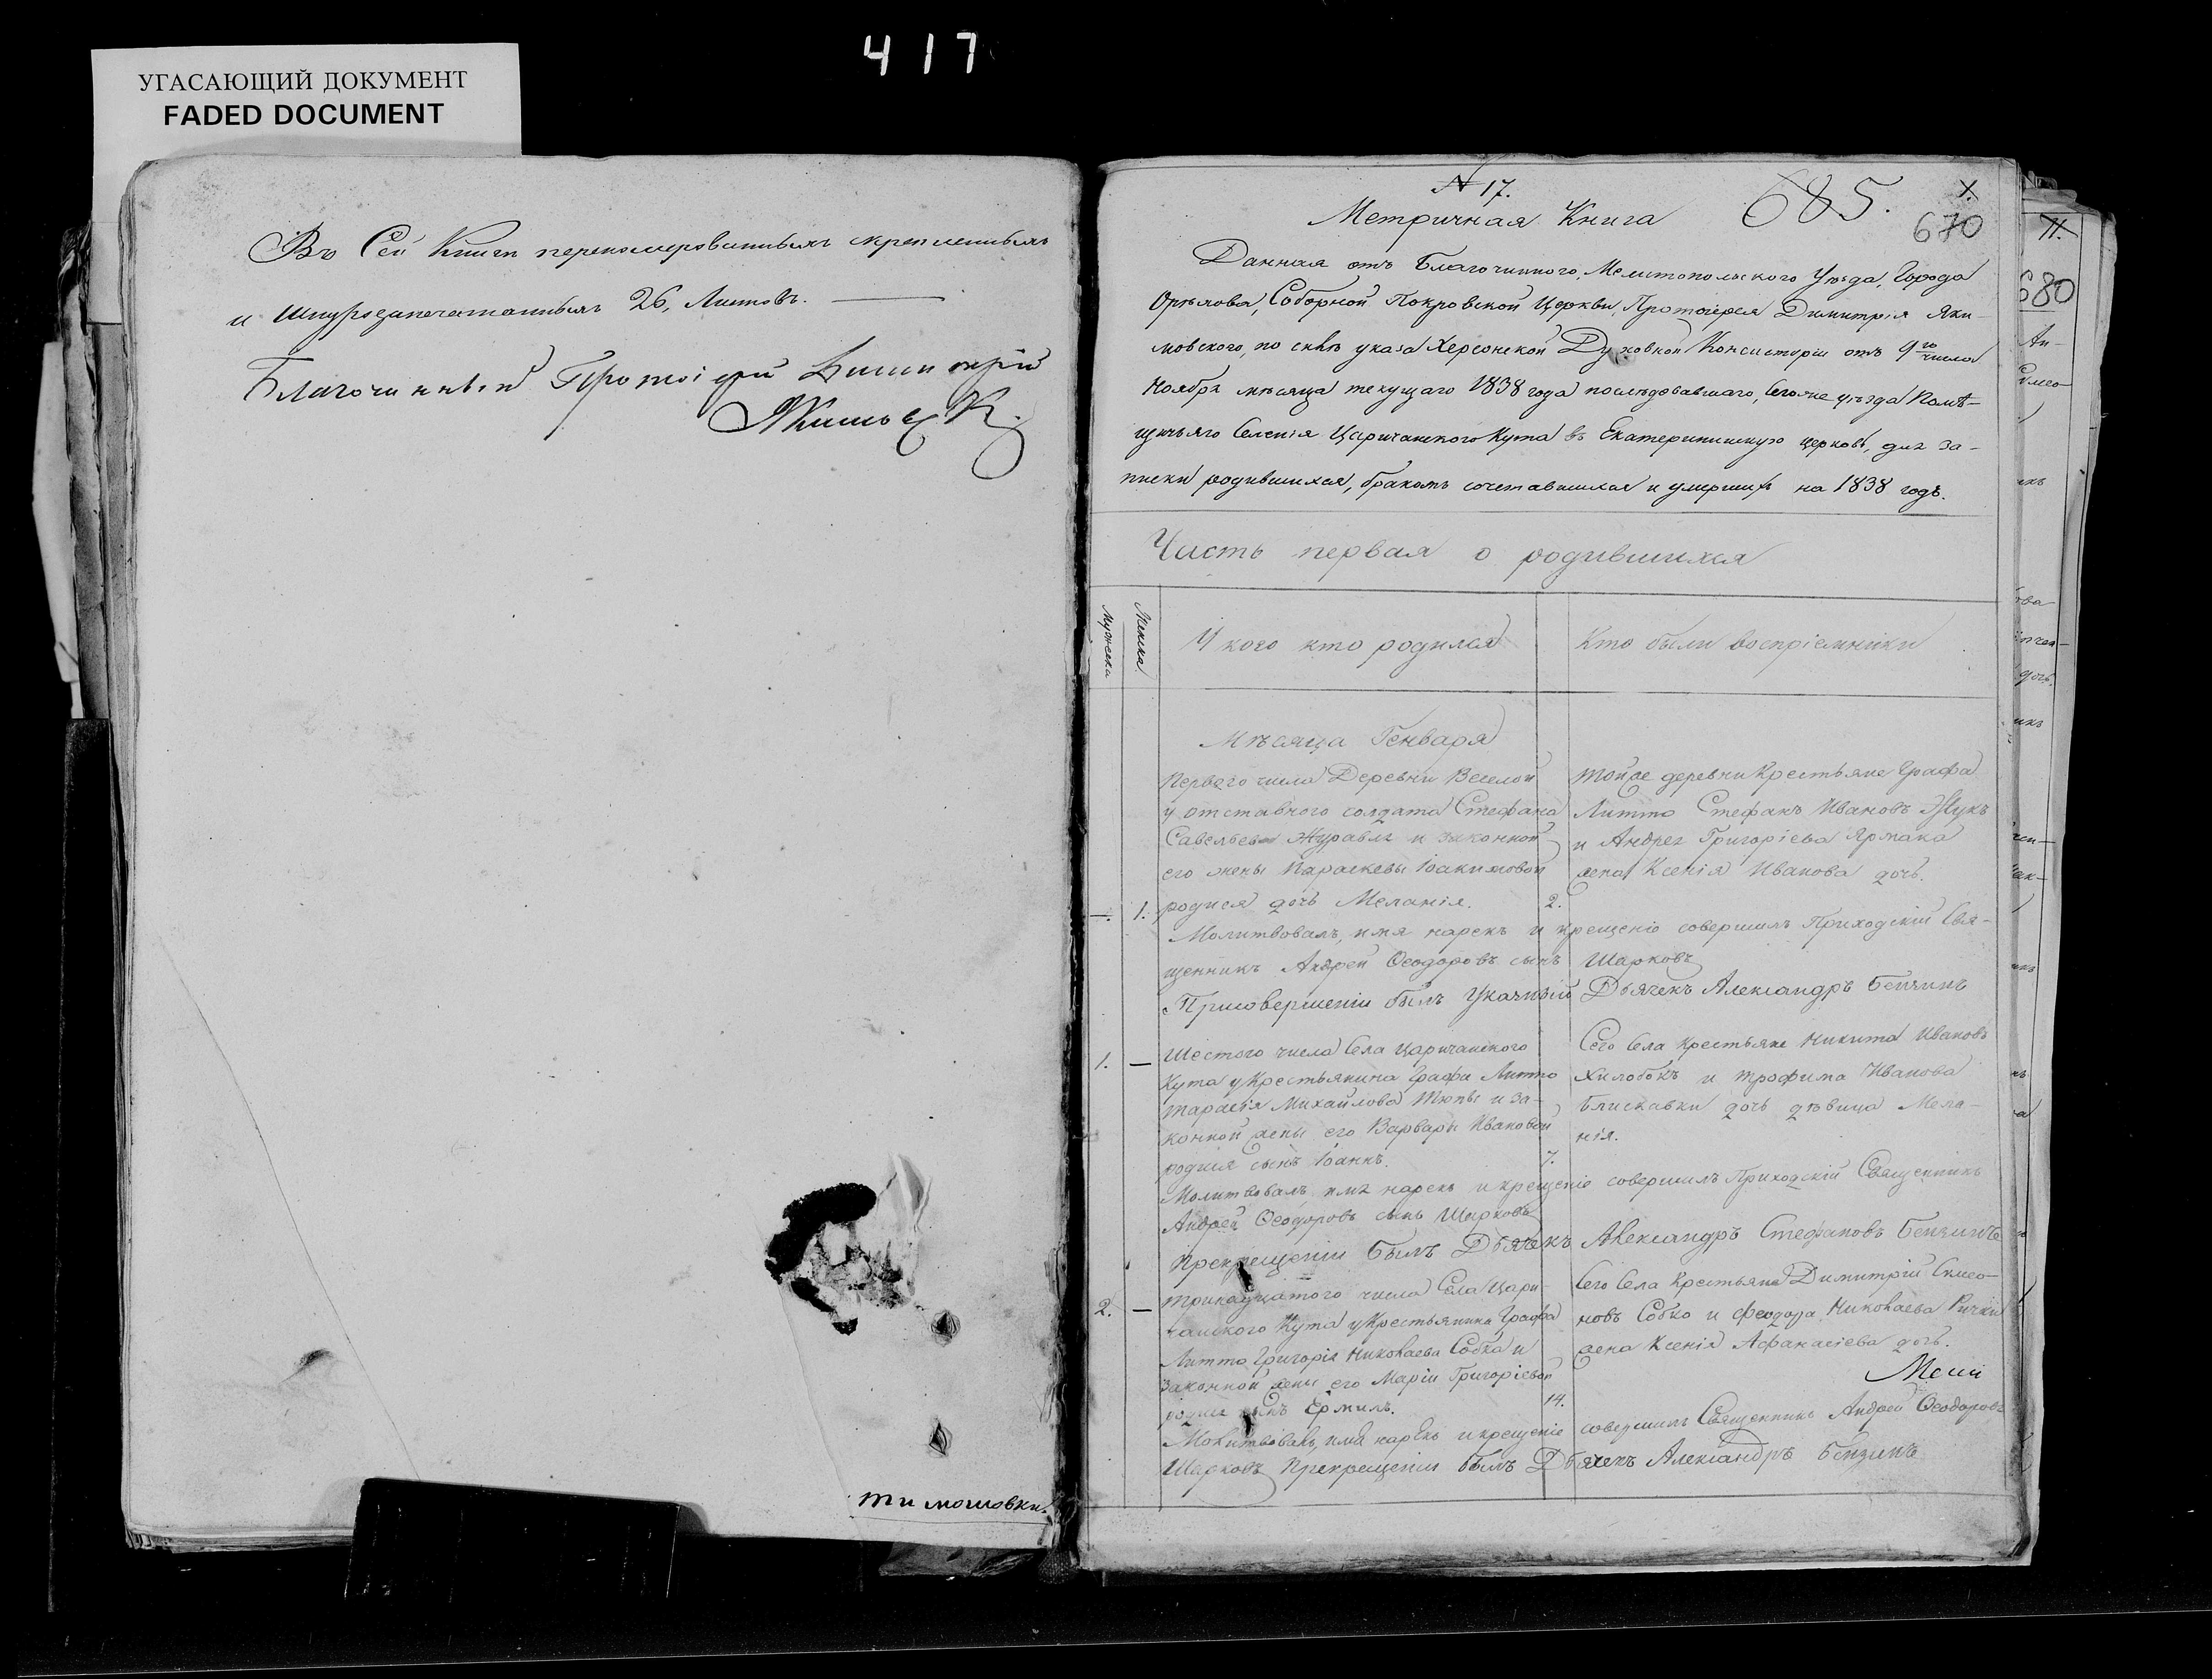 417
УГАСАЮЩИЙ ДОКУМЕНТ
FADED DOCUMENT
Въ Сей Книги переномерованныхъ скрепленныхъ
и шнурозапечатанныхъ 26, Листовъ.
Благочинный Протоіерей Димитрій
Тимошовки.
№ 17.
685.
Метричная Книга
670
Данная отъ Благочинного, Мелитопольского Уѣзда, Города
Орѣхова, Соборной Покровской Церкви, Протоіерея Димитрія Яки-
мовского, по силѣ указа Херсонской Духовной Консисторіи отъ 9го числа
Ноября мѣсяца текущаго 1838 года послѣдовавшаго, Сегоже уѣзда Помѣ-
щичьяго Селенія Царичанского Кута въ Екатерининскую церковь, для за-
писки родившихся, бракомъ сочетавшихся и умершихъ на 1838 годъ.
Часть первая о родившихся
Мужеска
Женска
У кого кто родился
Кто были воспріемники
Мѣсяца Генваря
Первого числа Деревни Веселой
у отставного солдата Стефана
Савельева Журавля и законной
его жены Параскевы Іоакимовой
—. 1. родися дочь Меланія. 2.
тойже деревни Крестьяне Графа
Литто Стефанъ Ивановъ Жукъ
и Андрея Григоріева Ярмака
жена Ксенія Иванова дочь.
Молитвовалъ, имя нарекъ и крещеніе совершилъ Приходскій Свя-
щенникъ Андрей Ѳеодоровъ сынъ Шарковъ
Присовершеніи былъ Указный Дьячекъ Александръ Бензинъ
1. — Шестого числа Села Царичанского
Кута у Крестьянина Графа Литто
Тарасія Михайлова Тюпы и за-
конной жены его Варвары Ивановой
родися сынъ Іоаннъ. 7.
Сего Села Крестьяне Никита Ивановъ
Хилобокъ и Трофима Иванова
Блискавки дочь дѣвица Мела-
нія.
Молитвовалъ, имя нарекъ и крещеніе совершилъ Приходскій Священникъ
Андрей Ѳеодоровъ сынъ Шарковъ
Прекрещеніи былъ Дьячекъ Александръ Стефановъ Бензинъ
2. — Тринадцатого числа Села Цари-
чанского Кута у Крестьянина Графа
Литто Григорія Николаева Собка и
законной жены его Маріи Григоріевой
родися сынъ Ермилъ. 14.
Сего Села Крестьяне Димитрій Симео-
новъ Собко и Феодора Николаева Рички
жена Ксенія Афанасіева дочь.
Молитвовалъ, имя нарекъ и крещеніе совершилъ Священникъ Андрей Ѳеодоровъ
Шарковъ Прекрещеніи былъ Дьячекъ Александръ Бензинъ
680